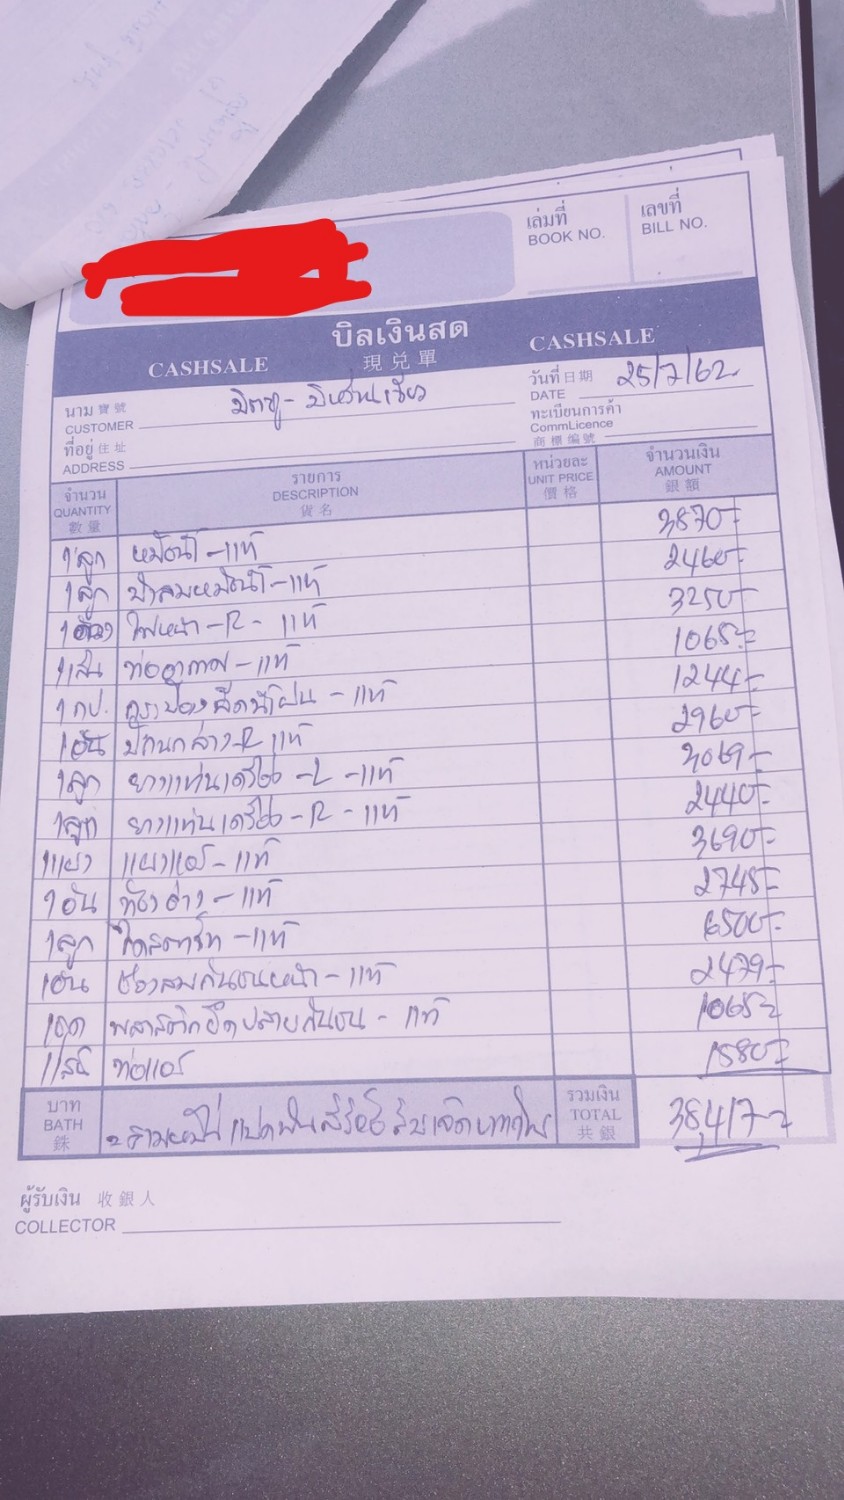 เล่มที่
BOOK NO.
เลขที่
BILL NO.
บิลเงินสด
CASHSALE 現兌單 CASHSALE
นาม 寶號
CUSTOMER
มิตซู -
วันที่ 日期
DATE
25/7/62
ที่อยู่ 住址
ADDRESS
ทะเบียนการค้า
CommLicence
商標編號
จำนวน
QUANTITY
數量
รายการ
DESCRIPTION
貨名
หน่วยละ
UNIT PRICE
價格
จำนวนเงิน
AMOUNT
銀額
1 ลูก หม้อน้ำ - แท้ 3870-
1 ลูก ฝาลมหม้อน้ำ - แท้ 2460-
1 ไฟหน้า - R - แท้ 3250-
1 เส้น ท่ออากาศ - แท้ 1065-
1 กป. กระป๋องฉีดน้ำฝน - แท้ 1244-
1 อัน ปีกนกล่าง - R แท้ 2960-
1 ลูก ยางแท่นเครื่อง - L - แท้ 3069-
1 ลูก ยางแท่นเครื่อง - R - แท้ 2440-
1 แผง แผงแอร์ - แท้ 3690-
1 อัน แท้ 2745-
1 ลูก ไดสตาร์ท - แท้ 6500-
1 อัน ช่องลมกันชนหน้า - แท้ 2479-
1 ชุด พลาสติกยึดปลายกันชน - แท้ 1065-
1 เส้น ท่อแอร์ 1580-
บาท
BATH
銖
สามหมื่นแปดพันสี่ร้อยสิบเจ็ดบาทถ้วน
รวมเงิน
TOTAL
共銀
38,417-
ผู้รับเงิน 收銀人
COLLECTOR